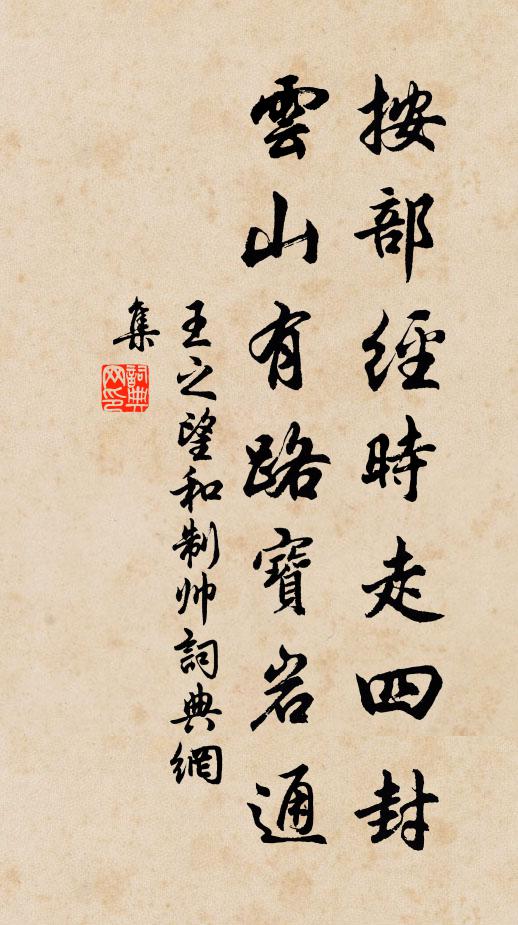 按部經時走四封
雲山有路寶岩通
王之望和制帅詞典網
集
詞典
网印